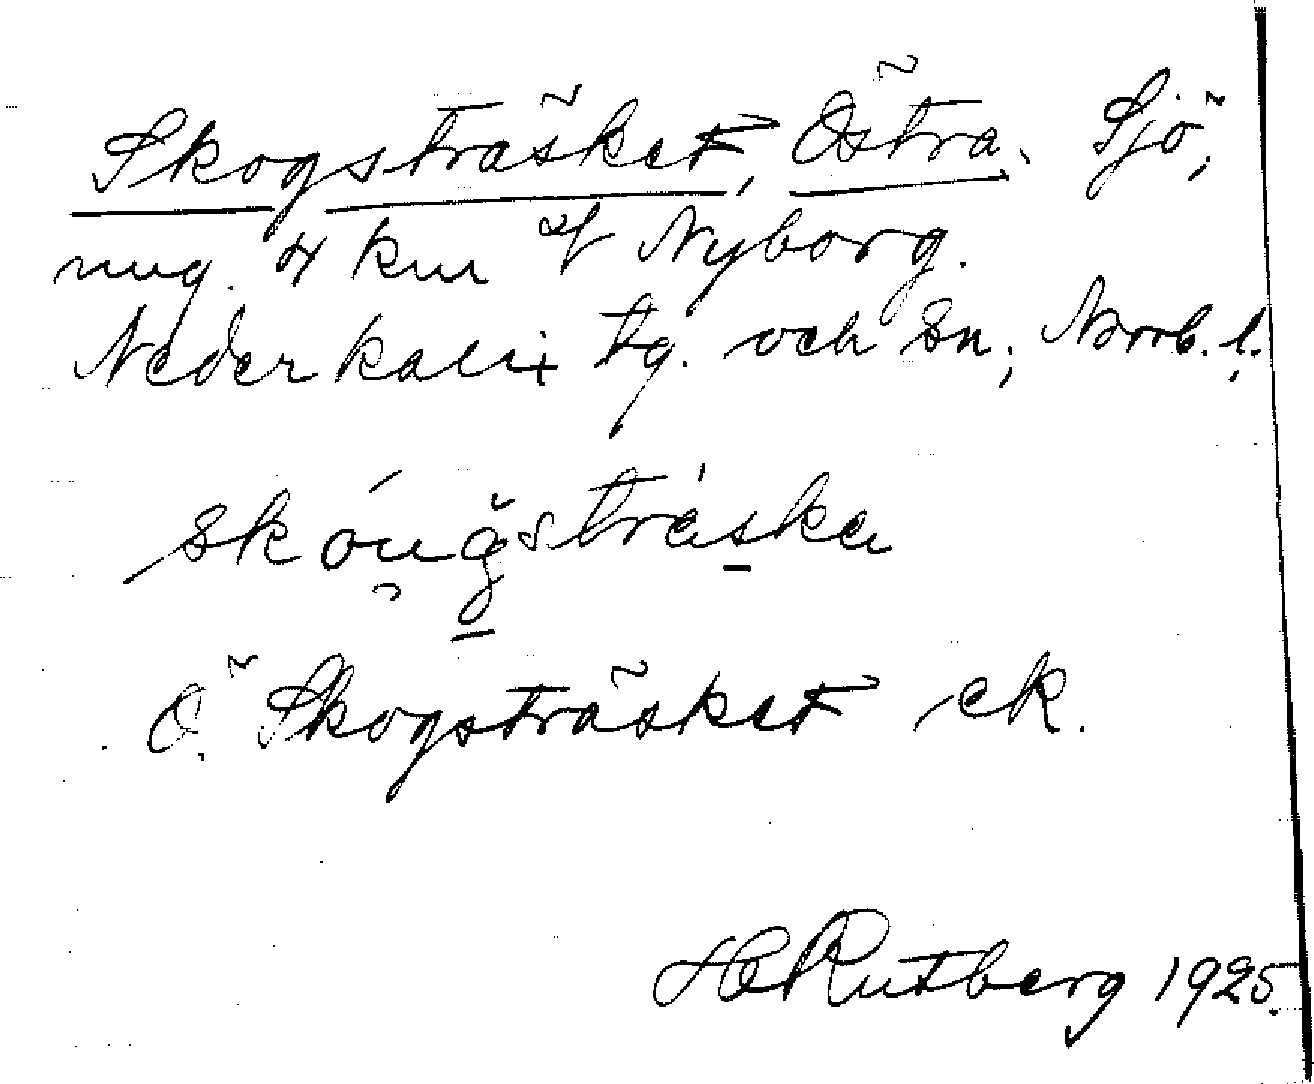 Skogsträsket, Östra. Sjö,
nug. 4 km Nyborg.
Nederkalix tg. och sn, Norrb. l.
skóugstráska
Ö. Skogsträsket ek.
H Rutberg 1925.